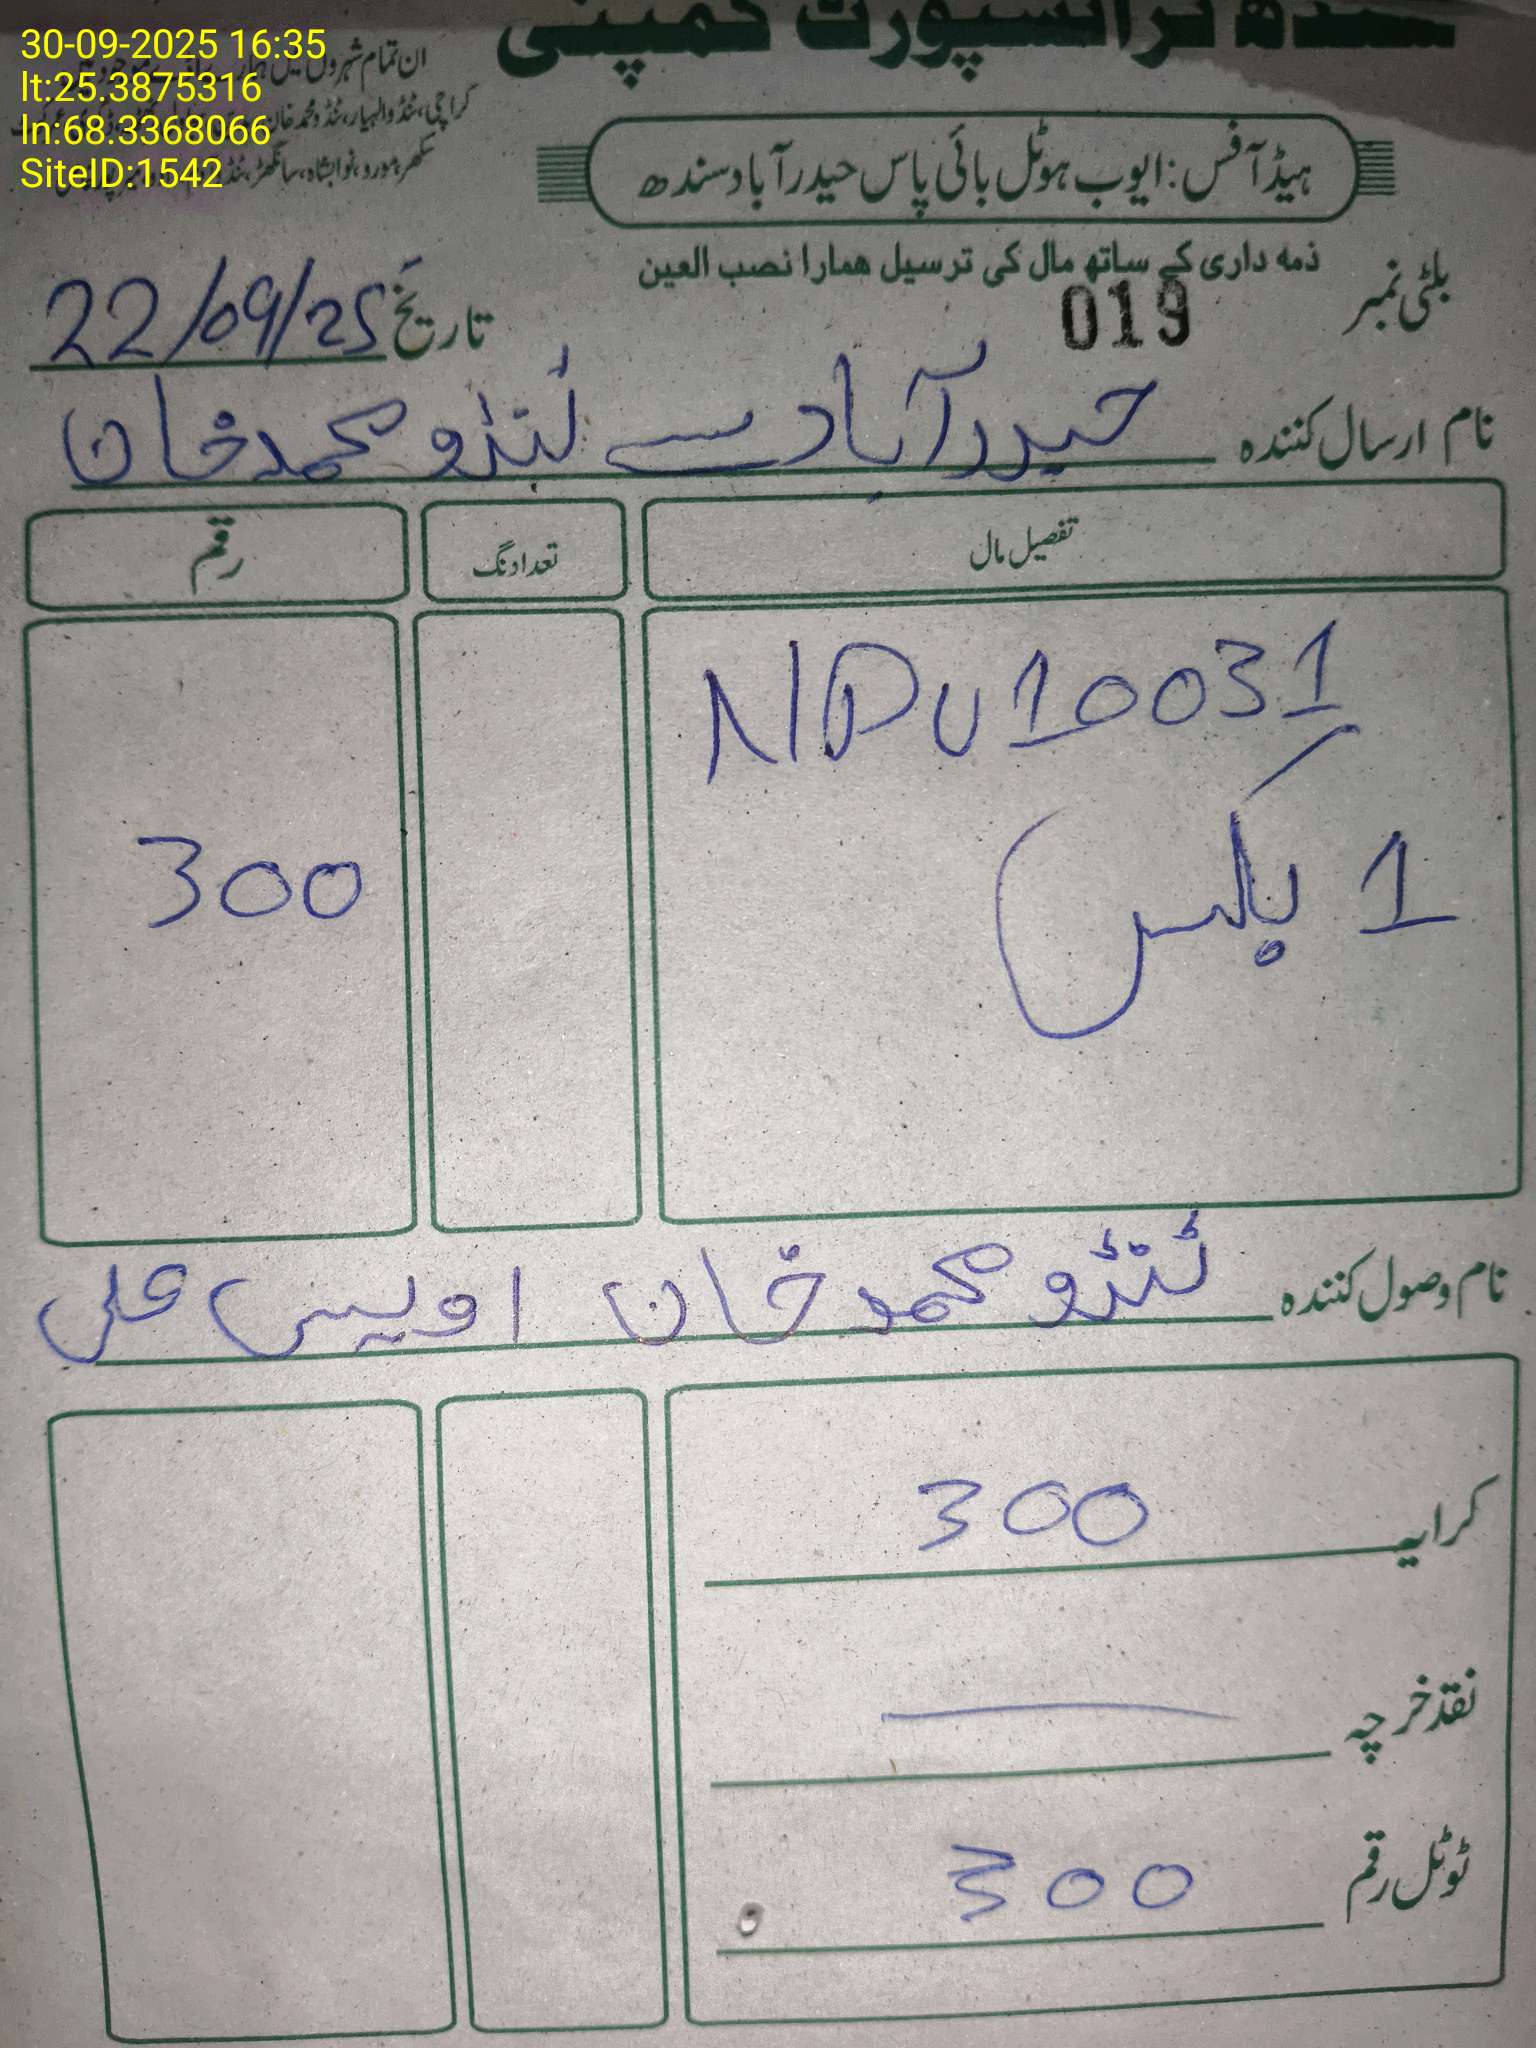 30-09-2025 16:35
lt:25.3875316
ln:68.3368066
SiteID:1542
سندھ ٹرانسپورٹ کمپنی
ان تمام شہروں میں
کراچی، ٹنڈوالہیار، ٹنڈو محمد خان
سکھر، مورو، نوابشاہ، سانگھڑ، ٹنڈو
ہیڈ آفس: ایوب ہوٹل بائی پاس حیدرآباد سندھ
ذمہ داری کے ساتھ مال کی ترسیل ھمارا نصب العین
بلٹی نمبر 019
تاریخ 22/09/25
نام ارسال کنندہ حیدرآباد سے ٹنڈو محمد خان
تفصیل مال تعداد نگ رقم
NDU10031
1 بکس
300
نام وصول کنندہ ٹنڈو محمد خان اویس علی
کرایہ 300
نقد خرچہ
ٹوٹل رقم 300